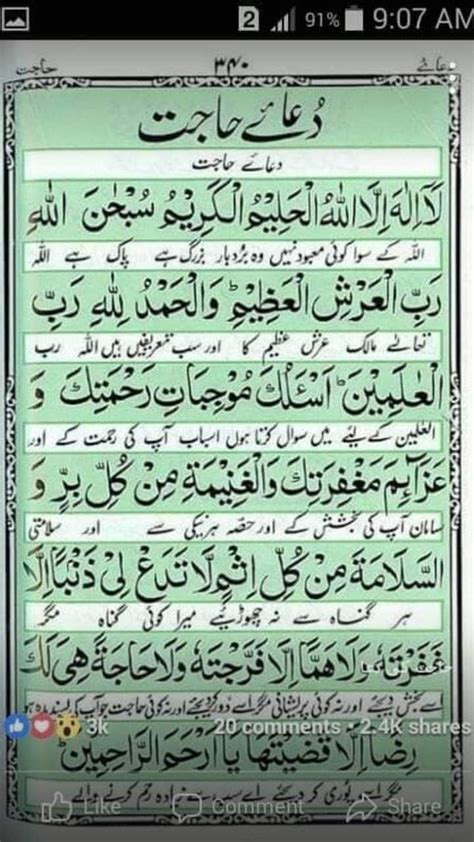 2 91% 9:07 AM
دعائے ۳۴۰ حاجت
دُعائے حاجت
دعائے حاجت
لَآ اِلٰهَ اِلَّا اللّٰهُ الْحَلِيْمُ الْكَرِيْمُ سُبْحٰنَ اللّٰهِ
اللہ کے سوا کوئی معبود نہیں وہ بردبار بزرگ ہے پاک ہے اللہ
رَبِّ الْعَرْشِ الْعَظِيْمِ ؕ وَالْحَمْدُ لِلّٰهِ رَبِّ
تعالےٰ مالک عرش عظیم کا اور سب تعریفیں ہیں اللہ رب
الْعٰلَمِيْنَ ؕ اَسْئَلُكَ مُوْجِبَاتِ رَحْمَتِكَ وَ
العٰلمین کے لیئے میں سوال کرتا ہوں اسباب آپ کی رحمت کے اور
عَزَآئِمَ مَغْفِرَتِكَ وَالْغَنِيْمَةَ مِنْ كُلِّ بِرٍّ وَ
سامان آپ کی بخشش کے اور حصّہ ہر نیکی سے اور سلامتی
السَّلَامَةَ مِنْ كُلِّ اِثْمٍ لَّا تَدَعْ لِيْ ذَنْۢبًا اِلَّا
ہر گناہ سے نہ چھوڑیئے میرا کوئی گناہ مگر
غَفَرْتَهٗ وَلَا هَمًّا اِلَّا فَرَّجْتَهٗ وَلَا حَاجَةً هِيَ لَكَ
اسے بخش دیجئے اور نہ کوئی پریشانی مگر اسے دور کر دیجئے اور نہ کوئی حاجت جو آپ کی پسندیدہ ہو
3k 20 comments 2.4K shares
رِضًا اِلَّا قَضَيْتَهَا يَا اَرْحَمَ الرَّاحِمِيْنَ ؕ
مگر اسے پوری کر دیجئے اے سب سے زیادہ رحم کرنے والے
Like Comment Share